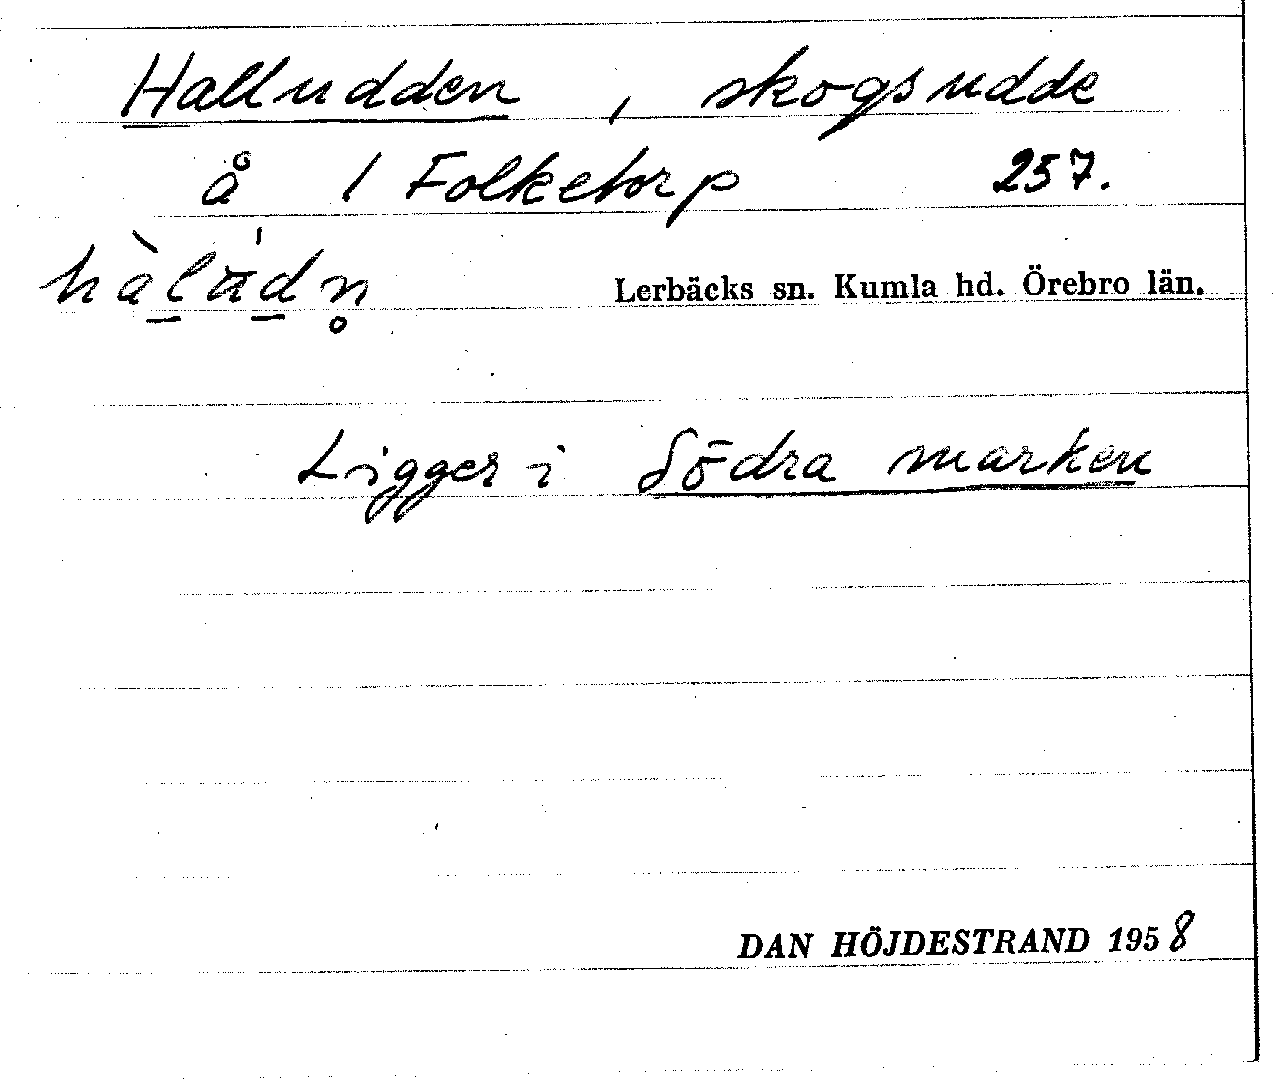 Halludden , skogsudde
å 1 Folketorp 257.
hàlu̇dn̥ Lerbäcks sn. Kumla hd. Örebro län.
Ligger i Södra marken
DAN HÖJDESTRAND 1958